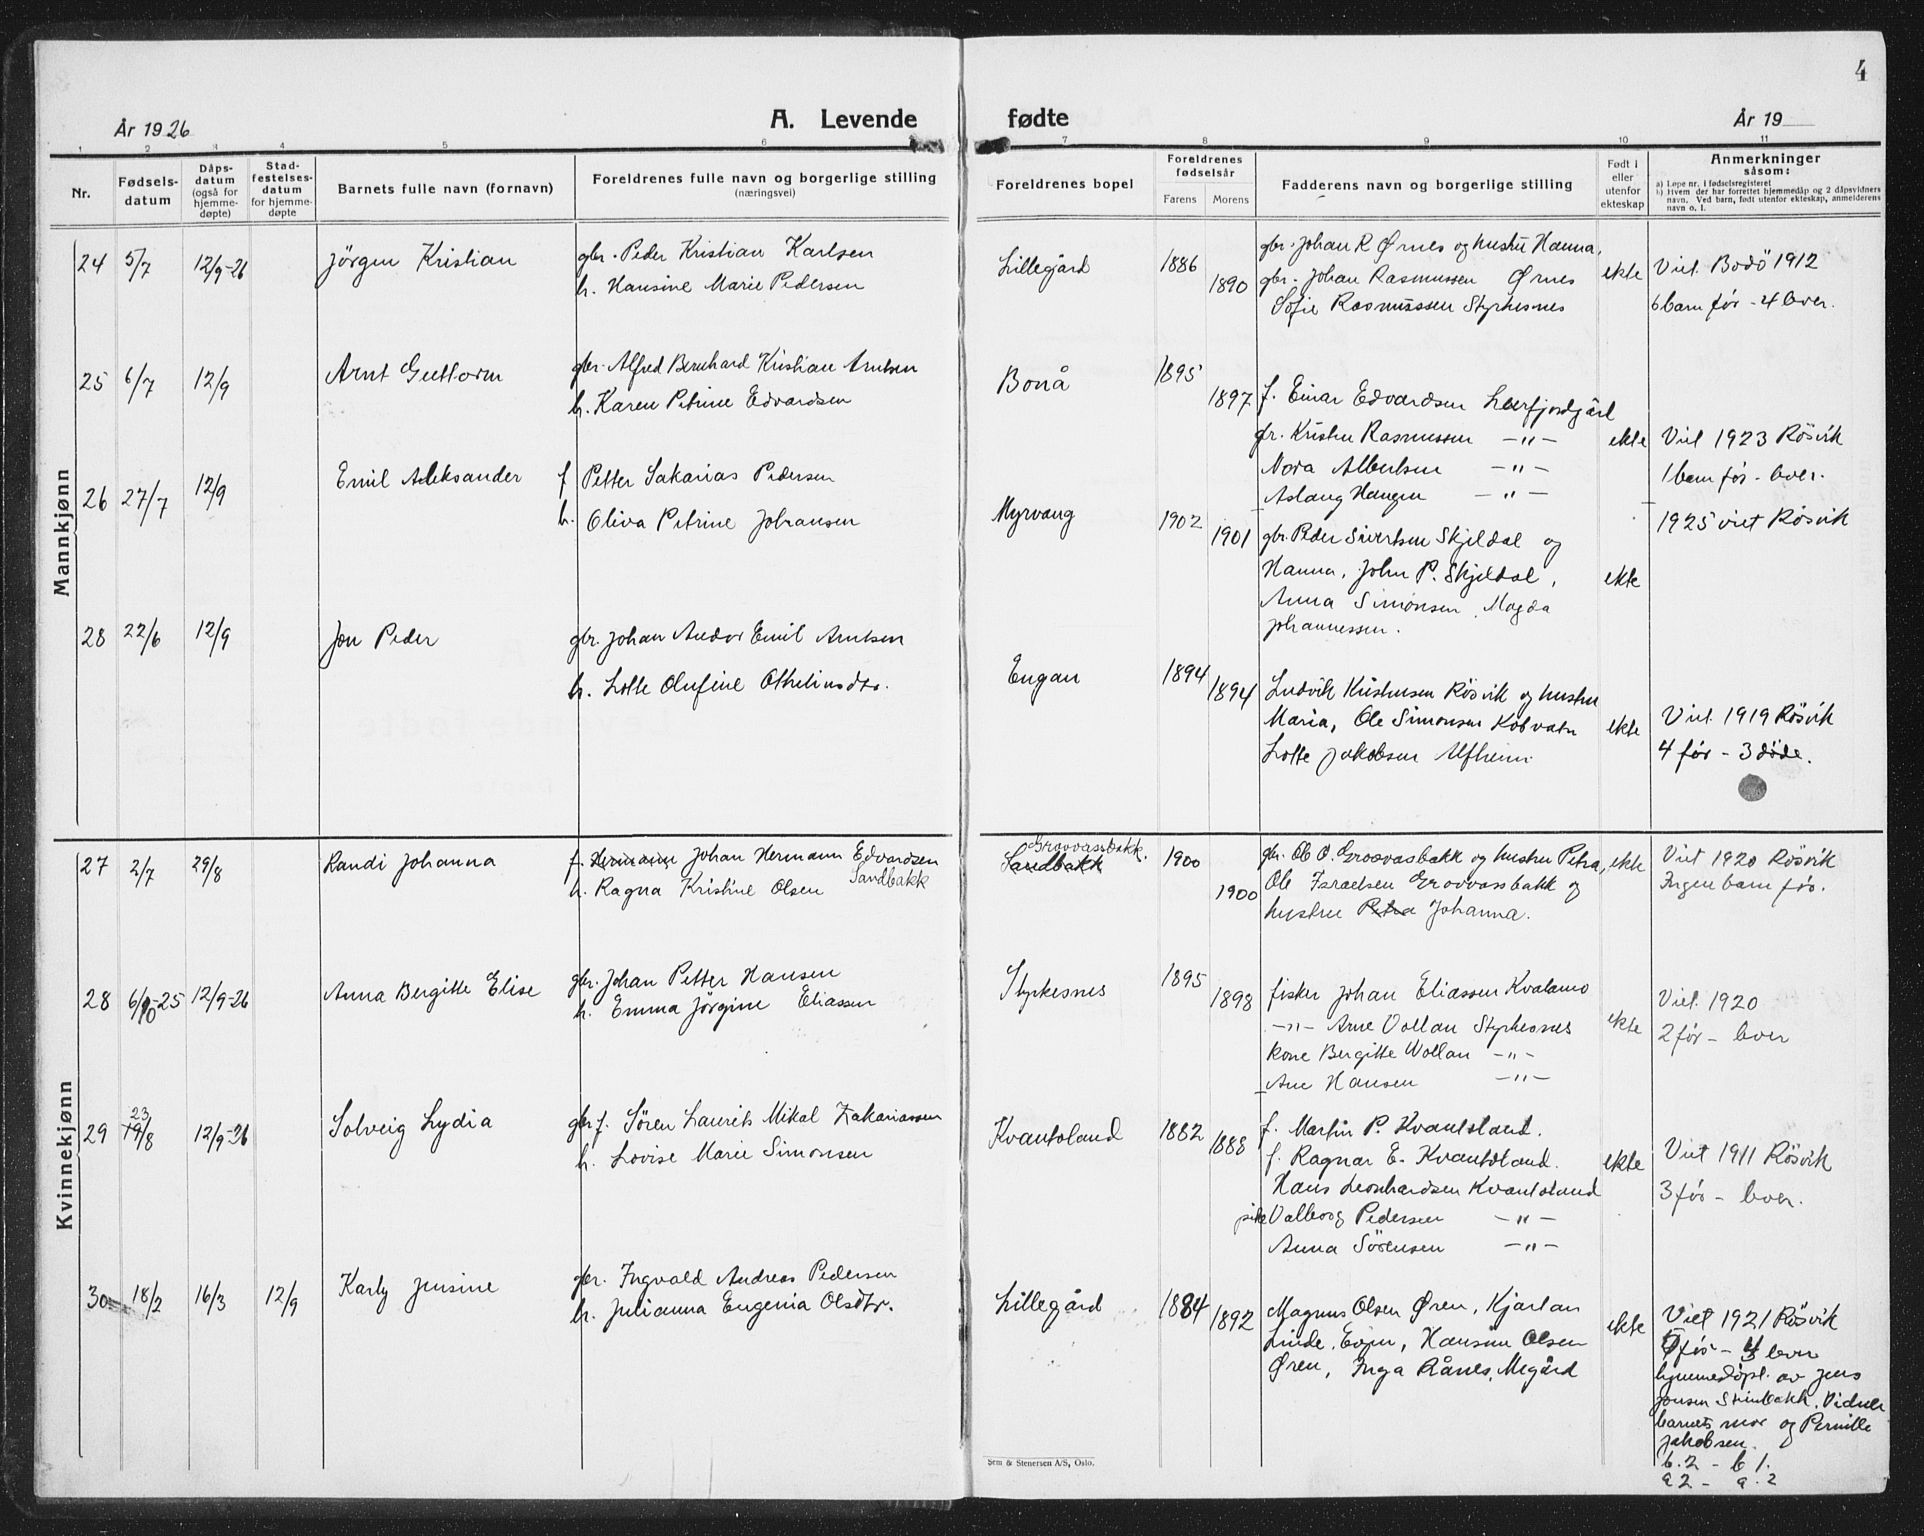 4
År 1926
A. Levende
fødte
År 19
1 2 3 4 5 6 7 8 9 10 11
Nr.
Fødsels-
datum
Dåps-
datum
(også for
hjemme-
døpte)
Stad-
festelses-
datum
for hjemme-
døpte
Barnets fulle navn (fornavn)
Foreldrenes fulle navn og borgerlige stilling
(næringsvei)
Foreldrenes bopel
Foreldrenes
fødselsår
Farens Morens
Fadderens navn og borgerlige stilling
Født i
eller
utenfor
ekteskap
Anmerkninger
såsom:
a) Løpe nr. i fødselsregisteret
b) Hvem der har forrettet hjemmedåp og 2 dåpsvidners
navn. Ved barn, født utenfor ekteskap, anmelderens
navn o. l.
Mannkjønn
24 5/7 12/9-26 Jörgen Kristian
gbr. Peder Kristian Karlsen
h. Hansine Marie Pedersen
Lillegård 1886 1890
gbr. Johan R Ørnes og hustru Hanna,
gbr. Johan Rasmussen Ørnes
Sofie Rasmussen Styrkesnes
ekte
Viet Bodö 1912
6 barn før - 4 lever.
25 6/7 12/9 Arnt Guttorm
gbr. Alfred Bernhard Kristian Arntsen
h. Karen Petrine Edvardsen
Bonå 1895 1897
f. Einar Edvardsen Leirfjordgård
gbr. Kristen Rasmussen -"-
Nora Albertsen -"-
Aslaug Haugen -"-
ekte
Viet 1923 Røsvik
1 barn før - lever.
26 27/7 12/9 Emil Aleksander
f Petter Sakarias Pedersen
h. Oliva Petrine Johansen
Myrvang 1902 1901
gbr. Peder Sivertsen Skjeldal og
Hanna, John P. Skjeldal,
Anna Simonsen, Magda
Johannessen.
ekte
1925 viet Røsvik
28 22/6 12/9 Jon Peder
gbr. Johan Andor Emil Arntsen
h. Lotte Olufine Othelinsdtr.
Engan 1894 1894
Ludvik Kristensen Røsvik og hustru
Maria, Ole Simonsen Kobvatn
Lotte Jakobsen Alfheim
ekte
Viet 1919 Røsvik
4 før - 3 døde.
Kvinnekjønn
27 2/7 29/8 Randi Johanna
f. Hermann Johan Hermann Edvardsen
Sandbakk
h. Ragna Kristine Olsen
Grovvassbakk.
Sandbakk 1900 1900
gbr. Ole O. Grovvasbakk og hustru Petra,
Ole Israelsen Grovvassbakk og
hustru Petra Johanna.
ekte
Viet 1920 Røsvik
Ingen barn før.
28 6/10-25 12/9-26 Anna Bergitte Elise
gbr. Johan Petter Hansen
h. Emma Jørgine Eliassen
Styrkesnes 1895 1898
fisker Johan Eliassen Kvalamo
-"- Arne Vollan Styrkesnes
kone Bergitte Wollan -"-
Ane Hansen -"-
ekte
Viet 1920
2 før - lever
29 23 19/8 12/9-26 Solveig Lydia
gbr f. Søren Laurits Mikal Zakariassen
h. Lovise Marie Simonsen
Kvantoland 1882 1888
f. Martin P. Kvantoland.
f. Ragnar E. Kvantoland.
Hans Leonhardsen Kvantoland
pike Valborg Pedersen -"-
Anna Sørensen -"-
ekte
Viet 1911 Røsvik
3 før - lever.
30 18/2 16/3 12/9 Karly Jensine
gbr. Ingvald Andreas Pedersen
h. Julianna Eugenia Olsdtr.
Lillegård 1884 1892
Magnus Olsen Øren, Kjartan
Linde, Evjen, Hansine Olsen
Øren, Inga Rånes, Megård
ekte
Viet 1921 Røsvik
før - lever
hjemmedøpt. av Jens
Jonsen Steinbakk. Vidner
barnets mor og Pernille
Jakobsen.
b. 2 - b 1.
a 2 - a. 2
Sem & Stenersen A/S, Oslo.